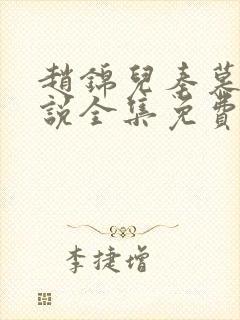 趙錦兒秦慕
說全集免費
李捷增